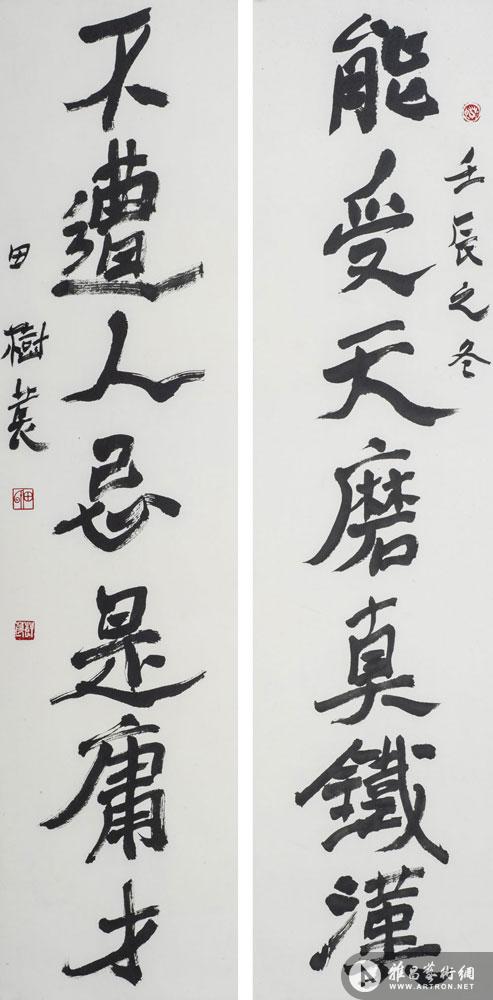 壬辰之冬
能受天磨真鐵漢
不遭人忌是庸才
田樹萇
雅昌藝術網
WWW.ARTRON.NET